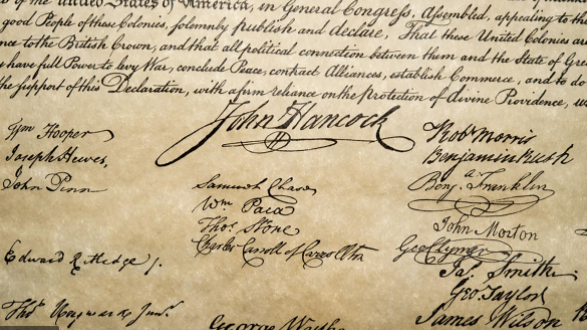 of the United States of America, in General Congress, Assembled, appealing to the
good People of these Colonies, solemnly publish and declare, That these United Colonies are
nce to the British Crown, and that all political connection between them and the State of Grea
have full Power to levy War, conclude Peace, contract Alliances, establish Commerce, and to do
the support of this Declaration, with a firm reliance on the Protection of divine Providence, we
John Hancock
Wm Hooper
Joseph Hewes,
John Penn
Edward Rutledge /.
Thos Heyward Junr.
Samuel Chase
Wm. Paca
Thos. Stone
Charles Carroll of Carrollton
George Wythe
Robt Morris
Benjamin Rush
Benj. Franklin
John Morton
Geo Clymer
Jas. Smith
Geo. Taylor
James Wilson